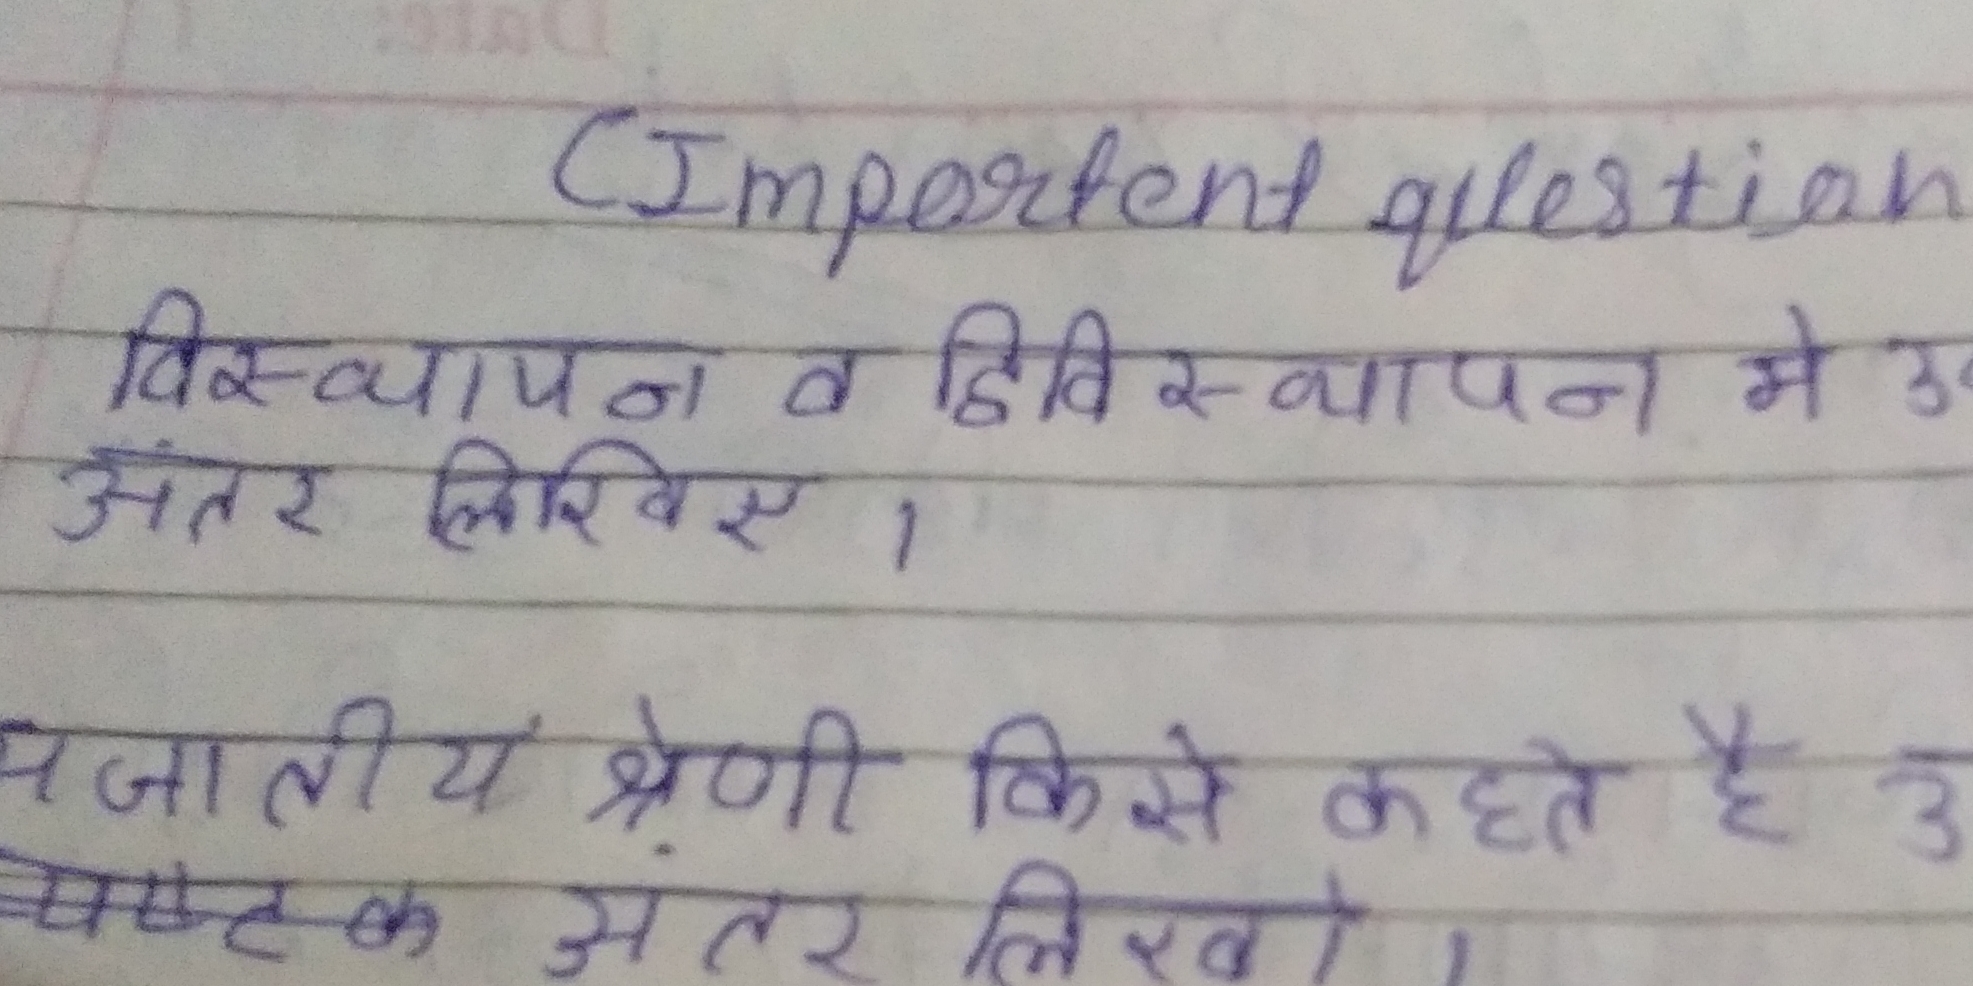 (Importent question
विस्थापन व द्विविस्थापन मे
अंतर लिखिए ।
जातीय श्रेणी किसे कहते है
अंतर लिखो ।